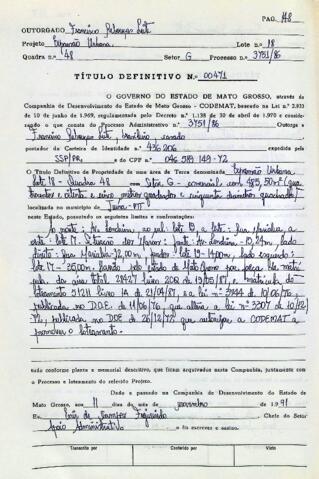 PAG. 48
OUTORGADO Francisco Rebouças Leite
Projeto Expansão Urbana Lote n.º 18
Quadra n.º 48 Setor G Processo n.º 3751/86
TÍTULO DEFINITIVO N.º 00471
O GOVERNO DO ESTADO DE MATO GROSSO, através da
Companhia de Desenvolvimento do Estado de Mato Grosso - CODEMAT, baseado na Lei n.º 2.933
de 10 de junho de 1.969, regulamentado pelo Decreto n.º 1.138 de 30 de abril de 1.970 e conside-
rando o que consta do Processo Administrativo n.º 3751/86 Outorga a
Francisco Rebouças Leite, brasileiro, casado
portador da Carteira de Identidade n.º 436 206 expedida pela
SSP/PR e do CPF n.º
O Título Definitivo de Propriedade de uma área de Terra denominada Expansão Urbana
Lote 18 - Quadra 48 Setor G - com 485,50m² (qua
trocentos e oitenta e cinco metros quadrados e cinquenta quadrados)
localizada no município de Juína - MT
neste Estado, possuindo os seguintes limites e confrontações:
Ao norte: Av. Londrina, ao sul: lote 19, a leste: Rua Marília, a
oeste: lote 17. frente: Av. Londrina
direito: Rua Marília fundos: lote 19 lado esquerdo:
lote 17 - 25,00m.
da área total 28427 livro
loteamento 51211 livro 1A de 21/04/87, e a lei n.º 3744 de 10/06/76,
publicada no D.O.E. de 11/06/76 que altera a lei n.º 3307 de 10/12/
72, publicada no DOE de 26/12/72 que autoriza a CODEMAT a
promover o loteamento.
tudo conforme planta e memorial descritivo, que ficam arquivados nesta Companhia, juntamente com
o Processo e loteamento do referido Projeto.
Dado e passado na Companhia de Desenvolvimento do Estado de
Mato Grosso, aos 11 dias do mês de novembro de 1991
Eu, Inês de Campos Figueiredo Chefe do Setor
Apoio Administrativo o fiz escrever e assino.
Transcrito por Conferido por Visto